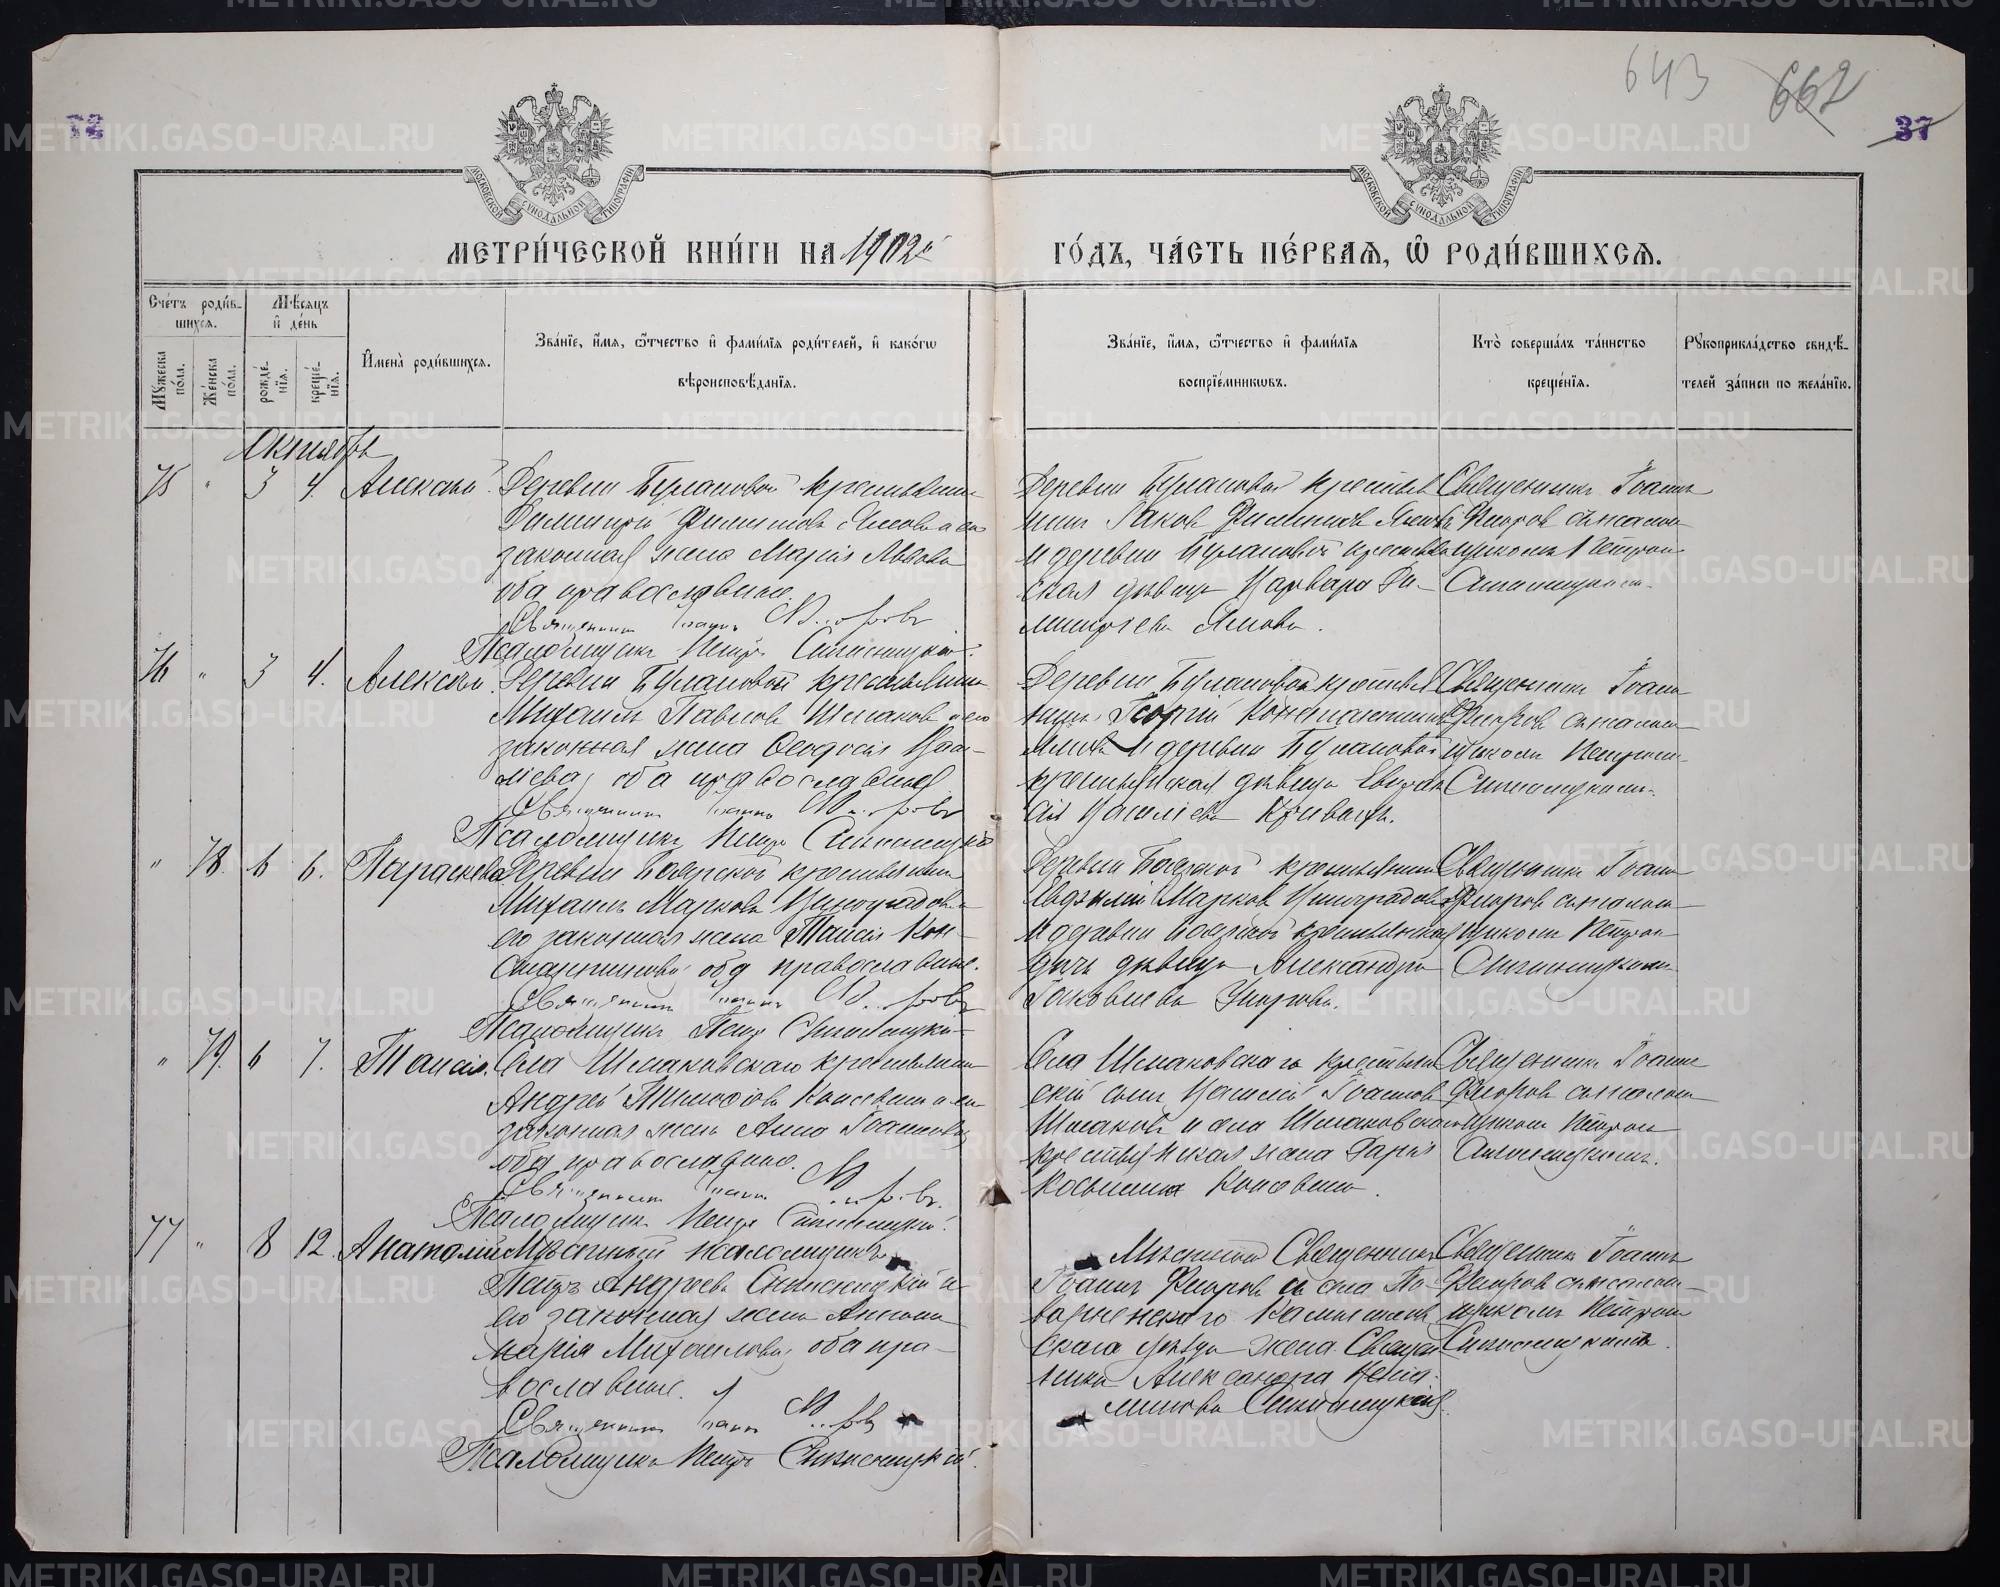 643 662
72
37
МОСКОВСКОЙ СѴНОДАЛЬНОЙ ТИПОГРАФІИ
МОСКОВСКОЙ СѴНОДАЛЬНОЙ ТИПОГРАФІИ
МЕТРИ́ЧЕСКОЙ КНИ́ГИ НА 1902й
ГО́ДЪ, ЧА́СТЬ ПЕ́РВАѦ, Ѽ РОДИ́ВШИХСѦ.
Сче́тъ роди́в-
шихсѧ.
Мѣ́сѧцъ
и҆ де́нь
Мꙋ́жеска по́ла.
Же́нска по́ла.
рожде́-
нїѧ.
креще́-
нїѧ.
И҆мена̀ роди́вшихсѧ.
Зва́нїе, и҆́мѧ, ѻ҆́тчество и҆ фами́лїѧ роди́телей, и҆ како́гѡ
вѣроисповѣ́данїѧ.
Зва́нїе, и҆́мѧ, ѻ҆́тчество и҆ фами́лїѧ
воспрїе́мникѡвъ.
Кто̀ соверша́лъ та́инство
креще́нїѧ.
Рꙋкоприкла́дство свидѣ́-
телей за́писи по жела́нїю.
Октябрь
75 " 3 4. Алексѣй. Деревни Булановой крестьянинъ
Димитрій Филиповъ Ямовъ и его
законная жена Марія Львова
оба православные.
Священникъ Іоаннъ Флоровъ
Псаломщикъ Петръ Снѣжницкій.
Деревни Булановой крестья-
нинъ Іаковъ Филиповъ Ямовъ
и деревни Булановой крестьян-
ская дѣвица Варвара Ди-
митріева Ямова.
Священникъ Іоаннъ
Флоровъ съ псалом-
щикомъ Петромъ
Снѣжницкимъ.
76 " 3 4. Алексѣй. Деревни Булановой крестьянинъ
Михаилъ Павловъ Шмаковъ и его
законная жена Ѳеодосія Васи-
ліева, оба православные
Священникъ Іоаннъ Флоровъ
Псаломщикъ Петръ Снѣжницкій
Деревни Булановой крестья-
нинъ Георгій Константиновъ
и деревни Булановой
крестьянская дѣвица Евпрак-
сія Василіева
Священникъ Іоаннъ
Флоровъ съ псалом-
щикомъ Петромъ
Снѣжницкимъ.
" 78. 6 6. Параскева Деревни Боярской крестьянинъ
Михаилъ Марковъ Виноградовъ и
его законная жена Таисія Кон-
стантинова, оба православные.
Священникъ Іоаннъ Флоровъ
Псаломщикъ Петръ Снѣжницкій
Деревни Боярской крестьянинъ
Марковъ Виноградовъ
и деревни Боярской крестьянская
дочь дѣвица Александра
Іаковлева
Священникъ Іоаннъ
Флоровъ съ псалом-
щикомъ Петромъ
Снѣжницкимъ
" 79. 6 7. Таисія. Села Шмаковскаго крестьянинъ
Андрей Тимоѳеевъ и его
законная жена Анна Іоаннова,
оба православные.
Священникъ Іоаннъ Флоровъ.
Псаломщикъ Петръ Снѣжницкій.
Села Шмаковскаго крестьян-
скій сынъ Василій Іоанновъ
Шмаковъ и села Шмаковскаго
крестьянская жена Дарія
Космина
Священникъ Іоаннъ
Флоровъ съ псалом-
щикомъ Петромъ
Снѣжницкимъ.
77 " 8 12. Анатолій Мѣстный псаломщикъ
Петръ Андреевъ Снѣжницкій и
его законная жена Антони-
Марія Михаилова, оба пра-
вославные.
Священникъ Іоаннъ Флоровъ
Псаломщикъ Петръ Снѣжницкій.
Мѣстный Священникъ
Іоаннъ Флоровъ и села По-
варненскаго Камышлов-
скаго уѣзда жена Священ-
ника Александра Веніа-
минова Снѣжницкая.
Священникъ Іоаннъ
Флоровъ съ псалом-
щикомъ Петромъ
Снѣжницкимъ.
METRIKI.GASO-URAL.RU